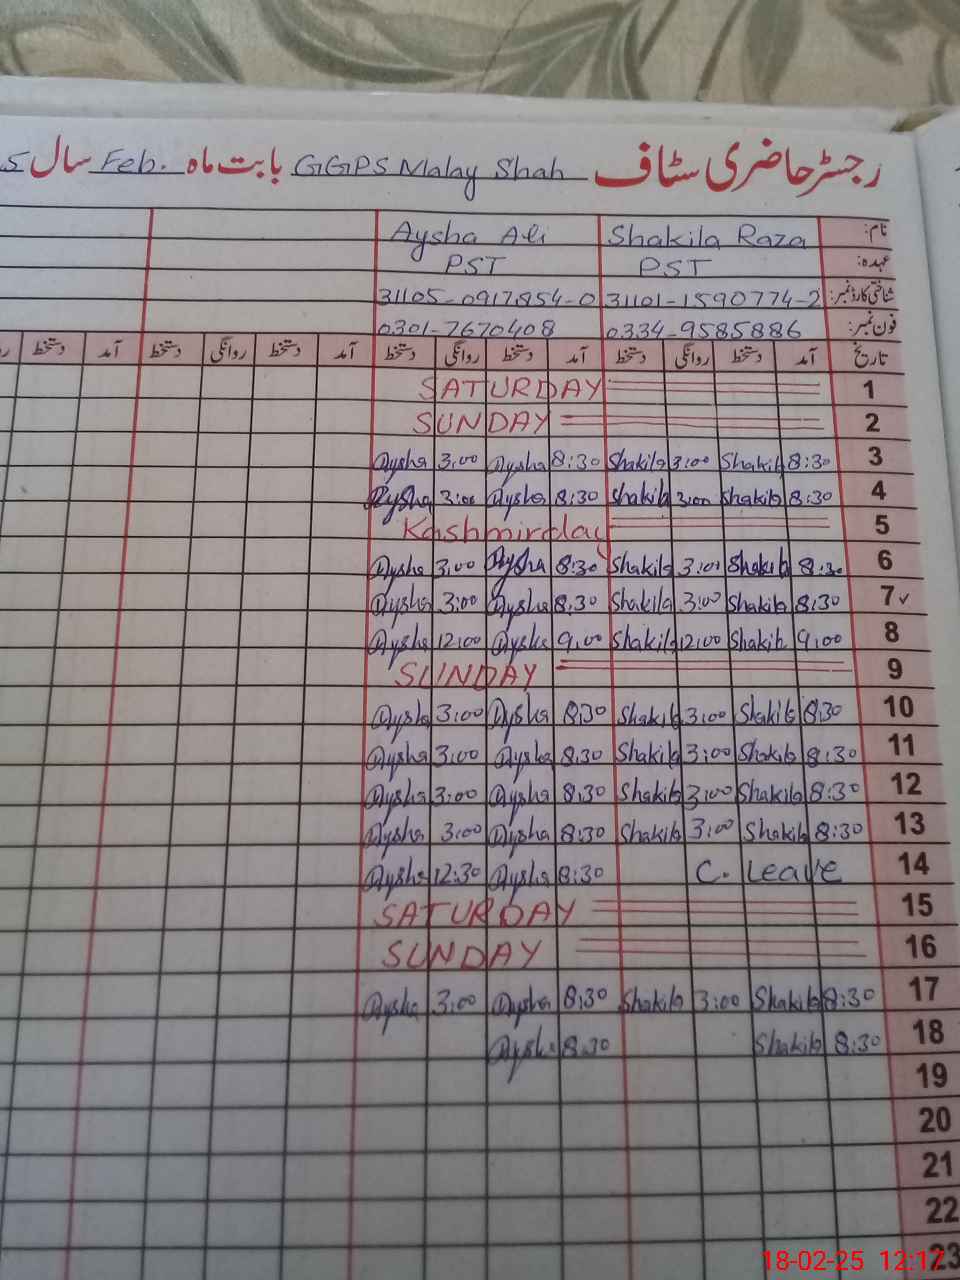 رجسٹر حاضری سٹاف GGPS Malay Shah بابت ماہ Feb. سال 5
نام: Shakila Raza Aysha Ali
عہدہ: PST PST
شناختی کارڈ نمبر: 31101-1590774-2 31105-0917854-0
فون نمبر: 0334-9585886 0301-7670408
تاریخ آمد دستخط روانگی دستخط آمد دستخط روانگی دستخط آمد دستخط روانگی دستخط آمد دستخط
1 SATURDAY
2 SUNDAY
3 8:30 Shakila 3:00 Shakila 8:30 Aysha 3:00 Aysha
4 8:30 Shakila 3:00 Shakila 8:30 Aysha 3:00 Aysha
5 Kashmir day
6 8:30 Shakila 3:00 Shakila 8:30 Aysha 3:00 Aysha
7 8:30 Shakila 3:00 Shakila 8:30 Aysha 3:00 Aysha
8 9:00 Shakila 12:00 Shakila 9:00 Aysha 12:00 Aysha
9 SUNDAY
10 8:30 Shakila 3:00 Shakila 8:30 Aysha 3:00 Aysha
11 8:30 Shakila 3:00 Shakila 8:30 Aysha 3:00 Aysha
12 8:30 Shakila 3:00 Shakila 8:30 Aysha 3:00 Aysha
13 8:30 Shakila 3:00 Shakila 8:30 Aysha 3:00 Aysha
14 C. Leave 8:30 Aysha 12:30 Aysha
15 SATURDAY
16 SUNDAY
17 8:30 Shakila 3:00 Shakila 8:30 Aysha 3:00 Aysha
18 8:30 Shakila 8:30 Aysha
19
20
21
22
23
18-02-25 12:17